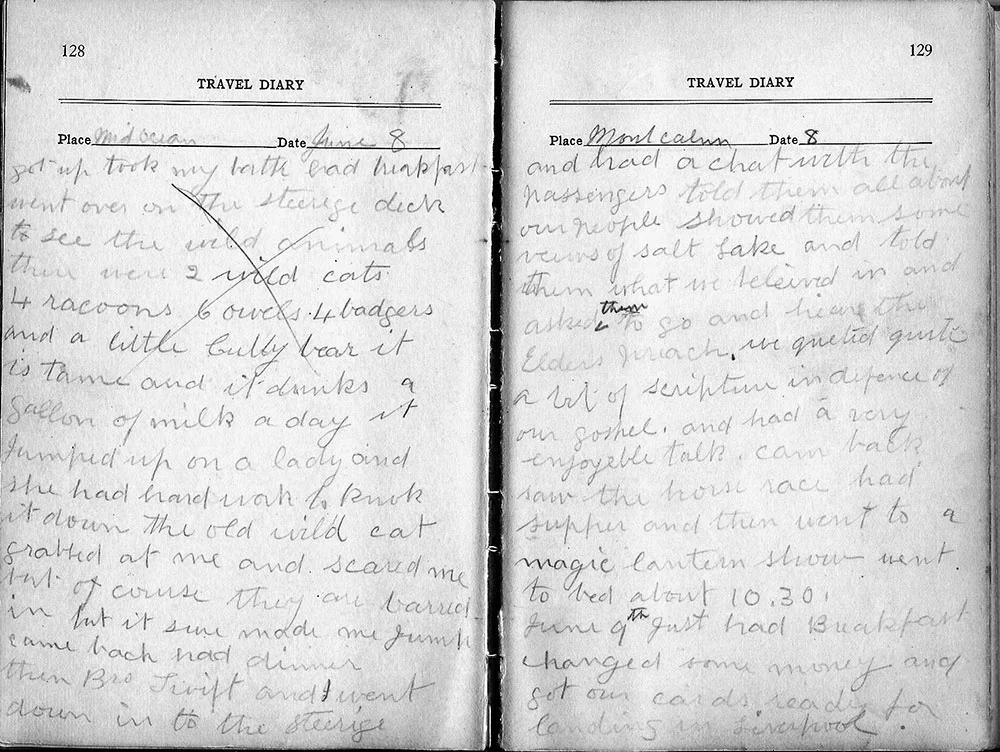 128
TRAVEL DIARY
Place Mid ocean Date June 8
got up took my bath ead breakfast
went over on the steerige deck
to see the wild animals
there were 2 wild cats
4 racoons 6 owels. 4 badgers
and a little bear it
is tame and it drinks a
gallon of milk a day it
Jumped up on a lady and
she had hard work to knok
it down the old wild cat
grabbed at me and scared me
but of course they are barred
in but it sure made me Jump
came back had dinner
then Bro Swift and I went
down in to the steerige
129
TRAVEL DIARY
Place Montcalm Date 8
and had a chat with the
passengers told them all about
our people showed them some
veiws of salt Lake and told
them what we beleived in and
asked them to go and hear the
Elders preach. we queted quite
a bit of scripture in defence of
our gospel. and had a very
enjoyeble talk. cam back
saw the horse race had
supper and then went to a
magic lantern show went
to bed about 10.30.
June 9th Just had Breakfast
changed some money and
got our cards ready for
landing in Liverpool.